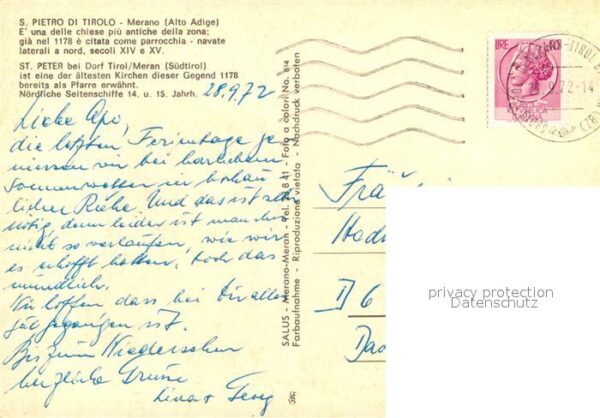 S. PIETRO DI TIROLO - Merano (Alto Adige)
E' una delle chiese più antiche della zona;
già nel 1178 è citata come parrocchia - navate
laterali a nord, secoli XIV e XV.
ST. PETER bei Dorf Tirol/Meran (Südtirol)
ist eine der ältesten Kirchen dieser Gegend 1178
bereits als Pfarre erwähnt.
Nördliche Seitenschiffe 14. u. 15. Jahrh.
28.9.72
Liebe
die letzten Ferientage ge
niessen wir bei herrlichem
Sonnenwetter in beschau
licher Ruhe. Und das ist
nötig, denn leider ist manches
nicht so verlaufen, wie wir
es erhofft hatten. Doch das
mündlich.
Wir hoffen dass bei Dir alles
gut gegangen ist.
Bis zum Wiedersehen
herzliche Grüsse
SALUS - Merano-Meran - Tel. 26 8 41 - Foto a colori No. 814
Farbaufnahme - Riproduzione vietata - Nachdruck verboten
LIRE
Frä
D 6
privacy protection
Datenschutz